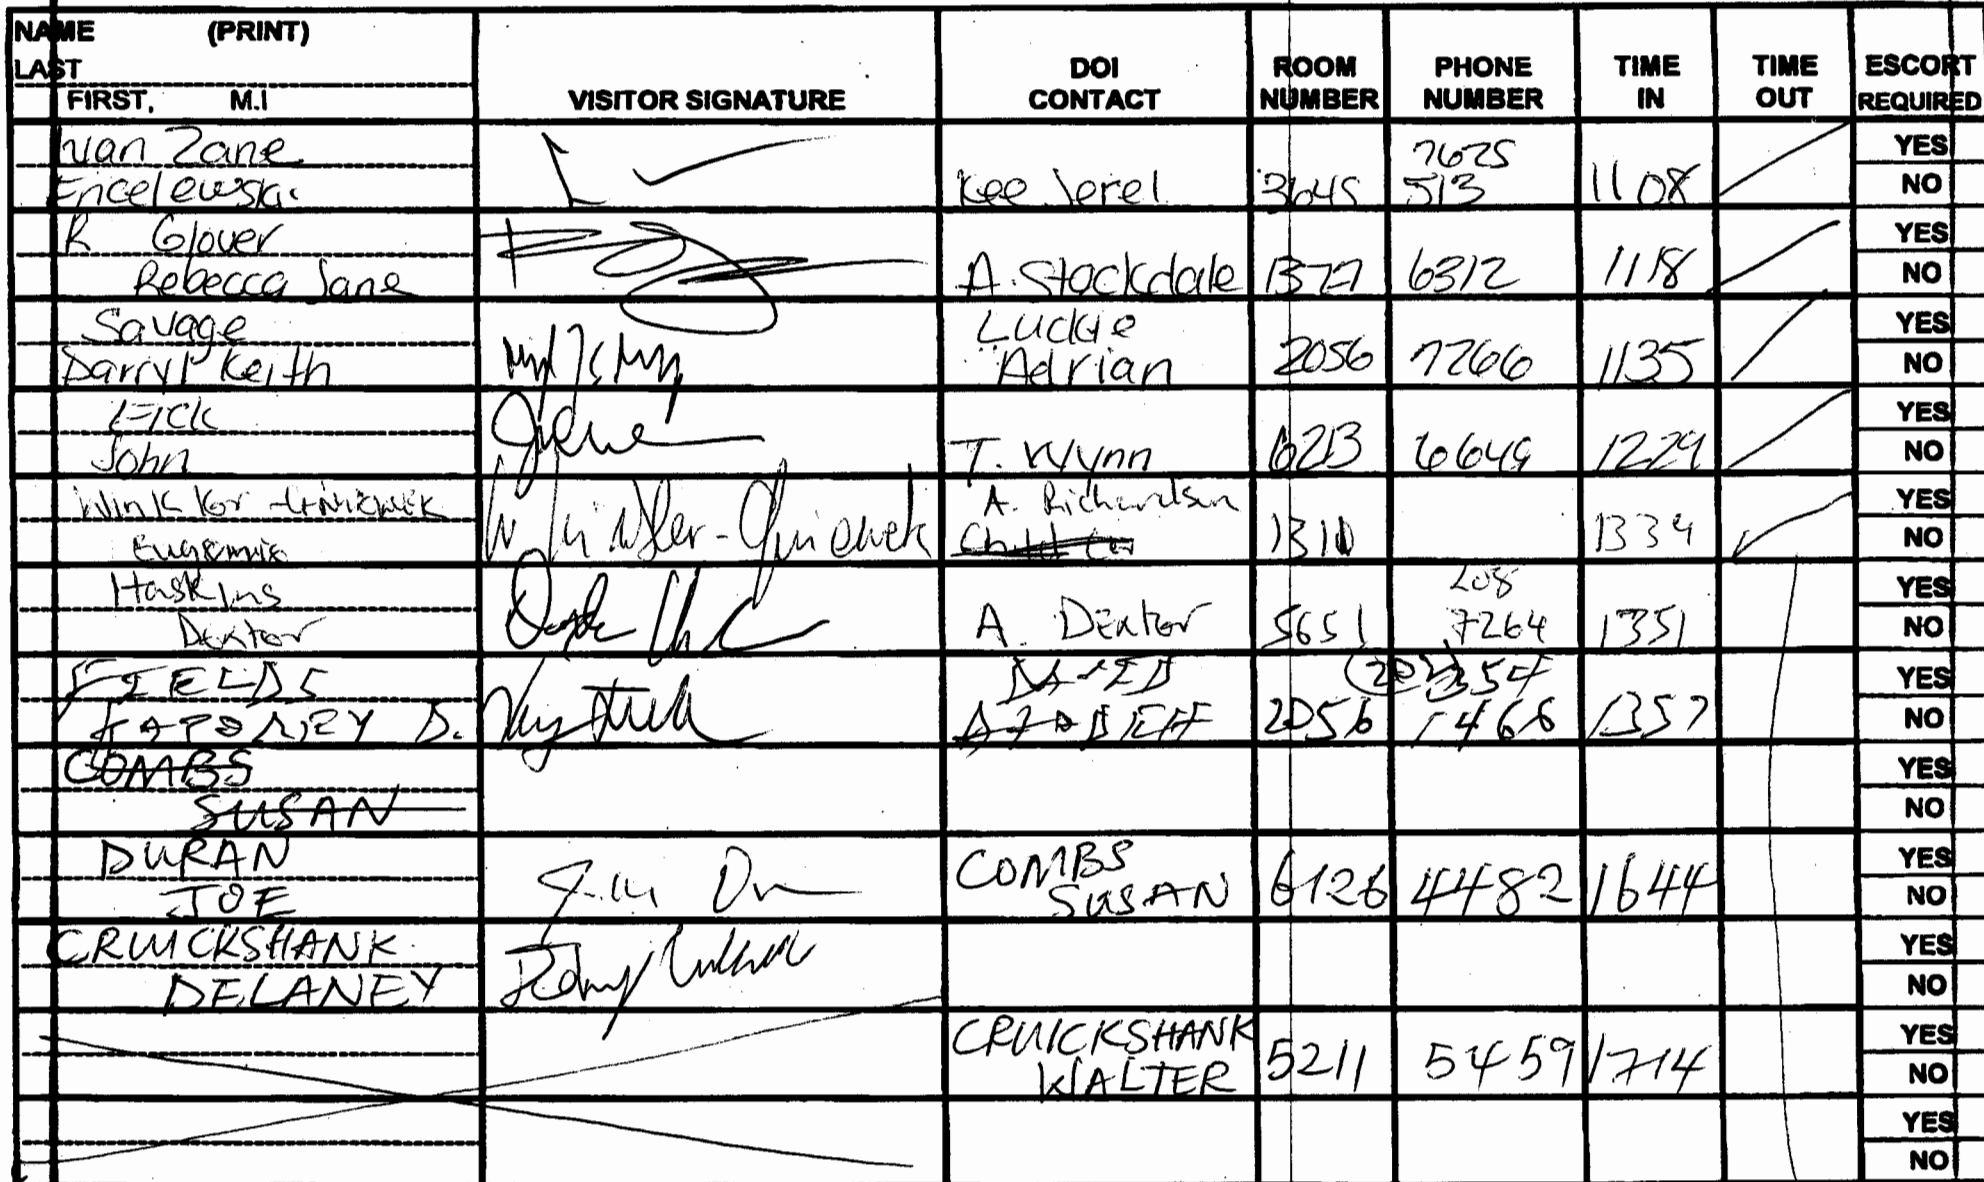 NAME (PRINT)
LAST
FIRST, M.I
VISITOR SIGNATURE
DOI CONTACT
ROOM NUMBER
PHONE NUMBER
TIME IN
TIME OUT
ESCORT REQUIRED
Ivan Zane
Encelewski Kee Jerel 3645 7675 513 1108 YES NO
R Glover
Rebecca Jane A. Stockdale 1377 6312 1118 YES NO
Savage Luckie
Darryl Keith Adrian 2056 7266 1135 YES NO
John T. Wynn 6213 6649 1229 YES NO
A. Richardson
1310 1334 YES NO
Haskins 208
Dexter A. Dexter 5651 7264 1351 YES NO
FIELDS
D. 2056 1466 1357 YES NO
COMBS
SUSAN YES NO
DURAN COMBS
JOE SUSAN 6126 4482 1644 YES NO
CRUICKSHANK
DELANEY YES NO
CRUICKSHANK
WALTER 5211 5459 1714 YES NO
YES NO